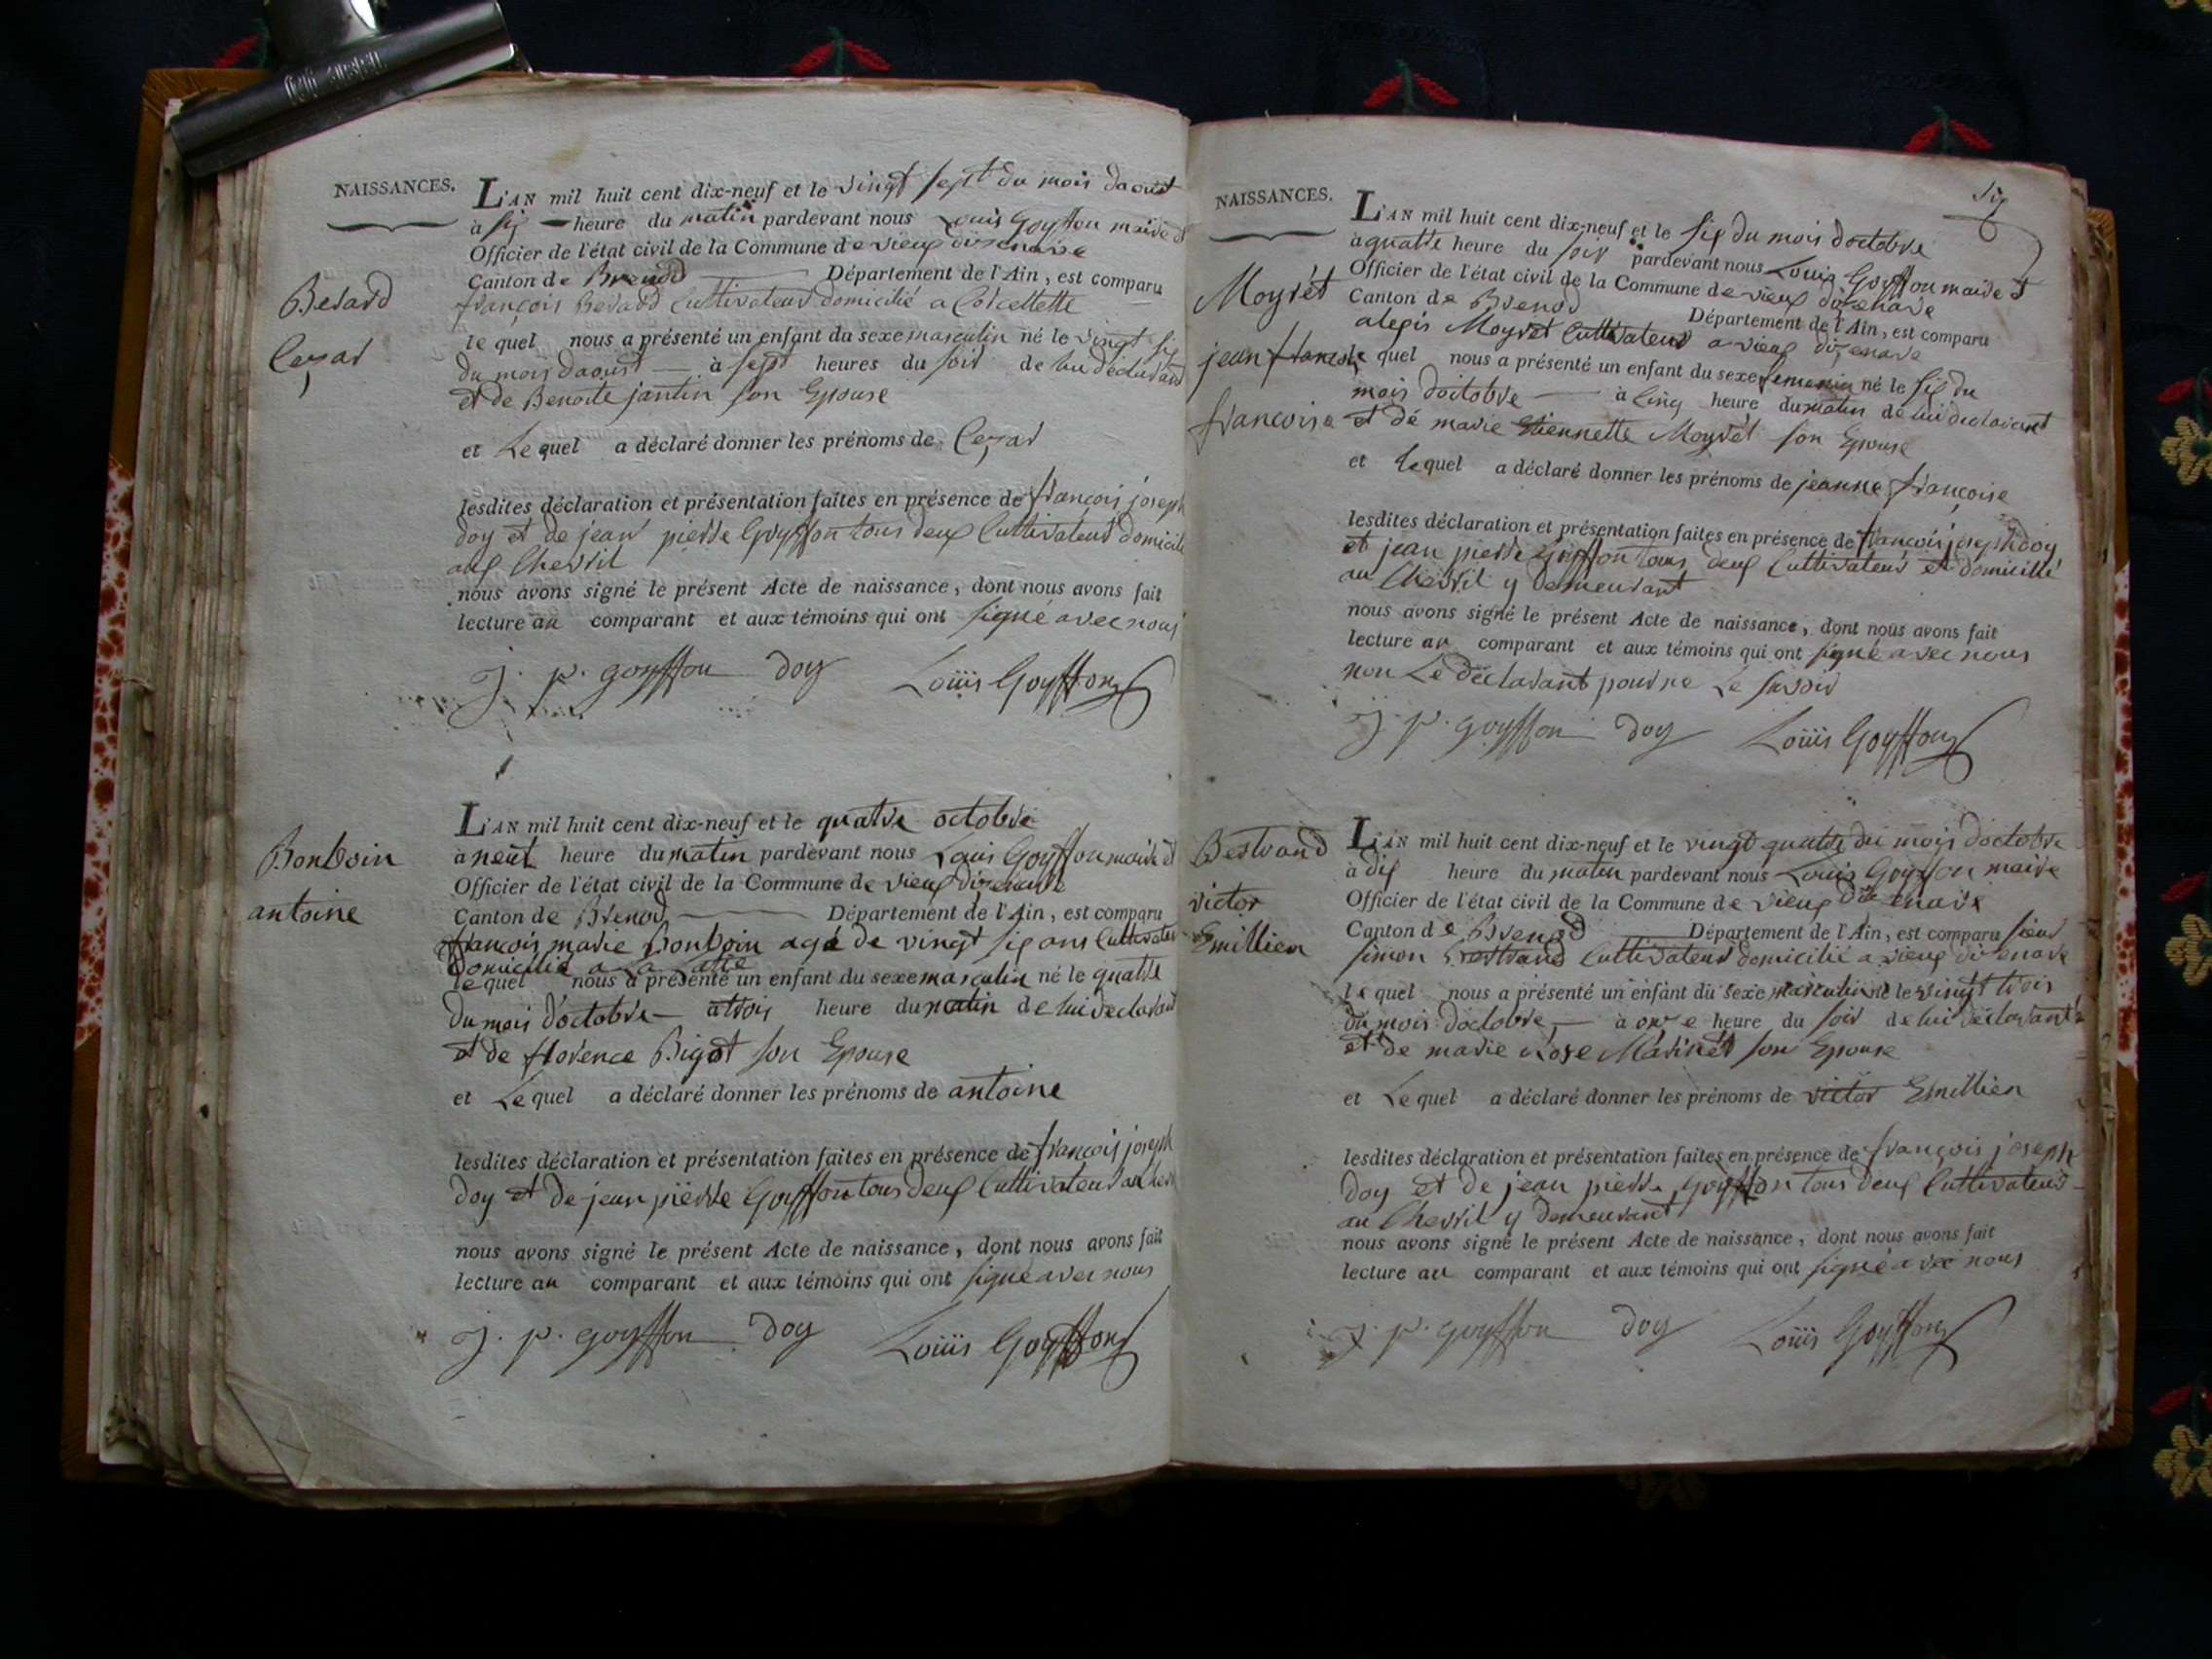 NAISSANCES.
L'AN mil huit cent dix-neuf et le vingt sept du mois daoust
à six heure du matin pardevant nous Louis Goyffon maire et
Officier de l'état civil de la Commune de vieux dizenave
Canton de Brenod Département de l'Ain, est comparu
Berard
françois Berard Cultivateur domicilié a Corcellette
le quel nous a présenté un enfant du sexe masculin né le vingt six
Cezar
du mois daoust à sept heures du soir de lui déclarant
et de Benoite jantin son Epouse
et Le quel a déclaré donner les prénoms de Cezar
lesdites déclaration et présentation faites en présence de françois joseph
doy et de jean pierre Goyffon tous deux Cultivateur domicilié
aux Chevril
nous avons signé le présent Acte de naissance, dont nous avons fait
lecture au comparant et aux témoins qui ont signé avec nous
j. p. goyffon doy Loüis Goyffon
L'AN mil huit cent dix-neuf et le quatre octobre
Bonboin
à neuf heure du matin pardevant nous Louis Goyffon maire et
Officier de l'état civil de la Commune de vieux dizenave
antoine
Canton de Brenod Département de l'Ain, est comparu
françois marie Bonboin agé de vingt six ans Cultivateur
domicilié a La
le quel nous a présenté un enfant du sexe masculin né le quatre
du mois d'octobre a trois heure du matin de lui declarant
et de florence Bigot son Epouse
et Le quel a déclaré donner les prénoms de antoine
lesdites déclaration et présentation faites en présence de françois joseph
doy et de jean pierre Goyffon tous deux Cultivateur au Chevril
nous avons signé le présent Acte de naissance, dont nous avons fait
lecture au comparant et aux témoins qui ont signé avec nous
j. p. goyffon doy Loüis Goyffon
six
NAISSANCES.
L'AN mil huit cent dix-neuf et le six du mois doctobre
à quatre heure du soir pardevant nous Louis Goyffon maire et
Officier de l'état civil de la Commune de vieux dizenave
Moyrét
Canton de Brenod Département de l'Ain, est comparu
alexis Moyret Cultivateur a vieux dizenave
jean francoi
le quel nous a présenté un enfant du sexe femenin né le six du
mois doctobre à cinq heure du matin de lui declarant
francoise
et de marie Etiennette Moyrét son Epouse
et Le quel a déclaré donner les prénoms de jeanne françoise
lesdites déclaration et présentation faites en présence de françois joseph doy
et jean pierre Goyffon tous deux Cultivateur et domicilié
au Chevril y demeurant
nous avons signé le présent Acte de naissance, dont nous avons fait
lecture au comparant et aux témoins qui ont signé avec nous
non Le déclarant pour ne Le savoir
j. p. goyffon doy Loüis Goyffon
Bertrand
L'AN mil huit cent dix-neuf et le vingt quatre du mois doctobre
à dix heure du matin pardevant nous Louis Goyffon maire
victor
Officier de l'état civil de la Commune de vieux dizenave
Emillien
Canton de Brenod Département de l'Ain, est comparu sieur
simon Bertrand Cultivateur domicilié a vieux dizenave
le quel nous a présenté un enfant du sexe masculin né le vingt trois
du mois doctobre, à onze heure du soir de lui déclarant
et de marie Rose Marinét son Epouse
et Le quel a déclaré donner les prénoms de victor Emillien
lesdites déclaration et présentation faites en présence de françois joseph
doy et de jean pierre goyffon tous deux Cultivateur
au Chevril y demeurant
nous avons signé le présent Acte de naissance, dont nous avons fait
lecture au comparant et aux témoins qui ont signé avec nous
j. p. goyffon doy Loüis Goyffon